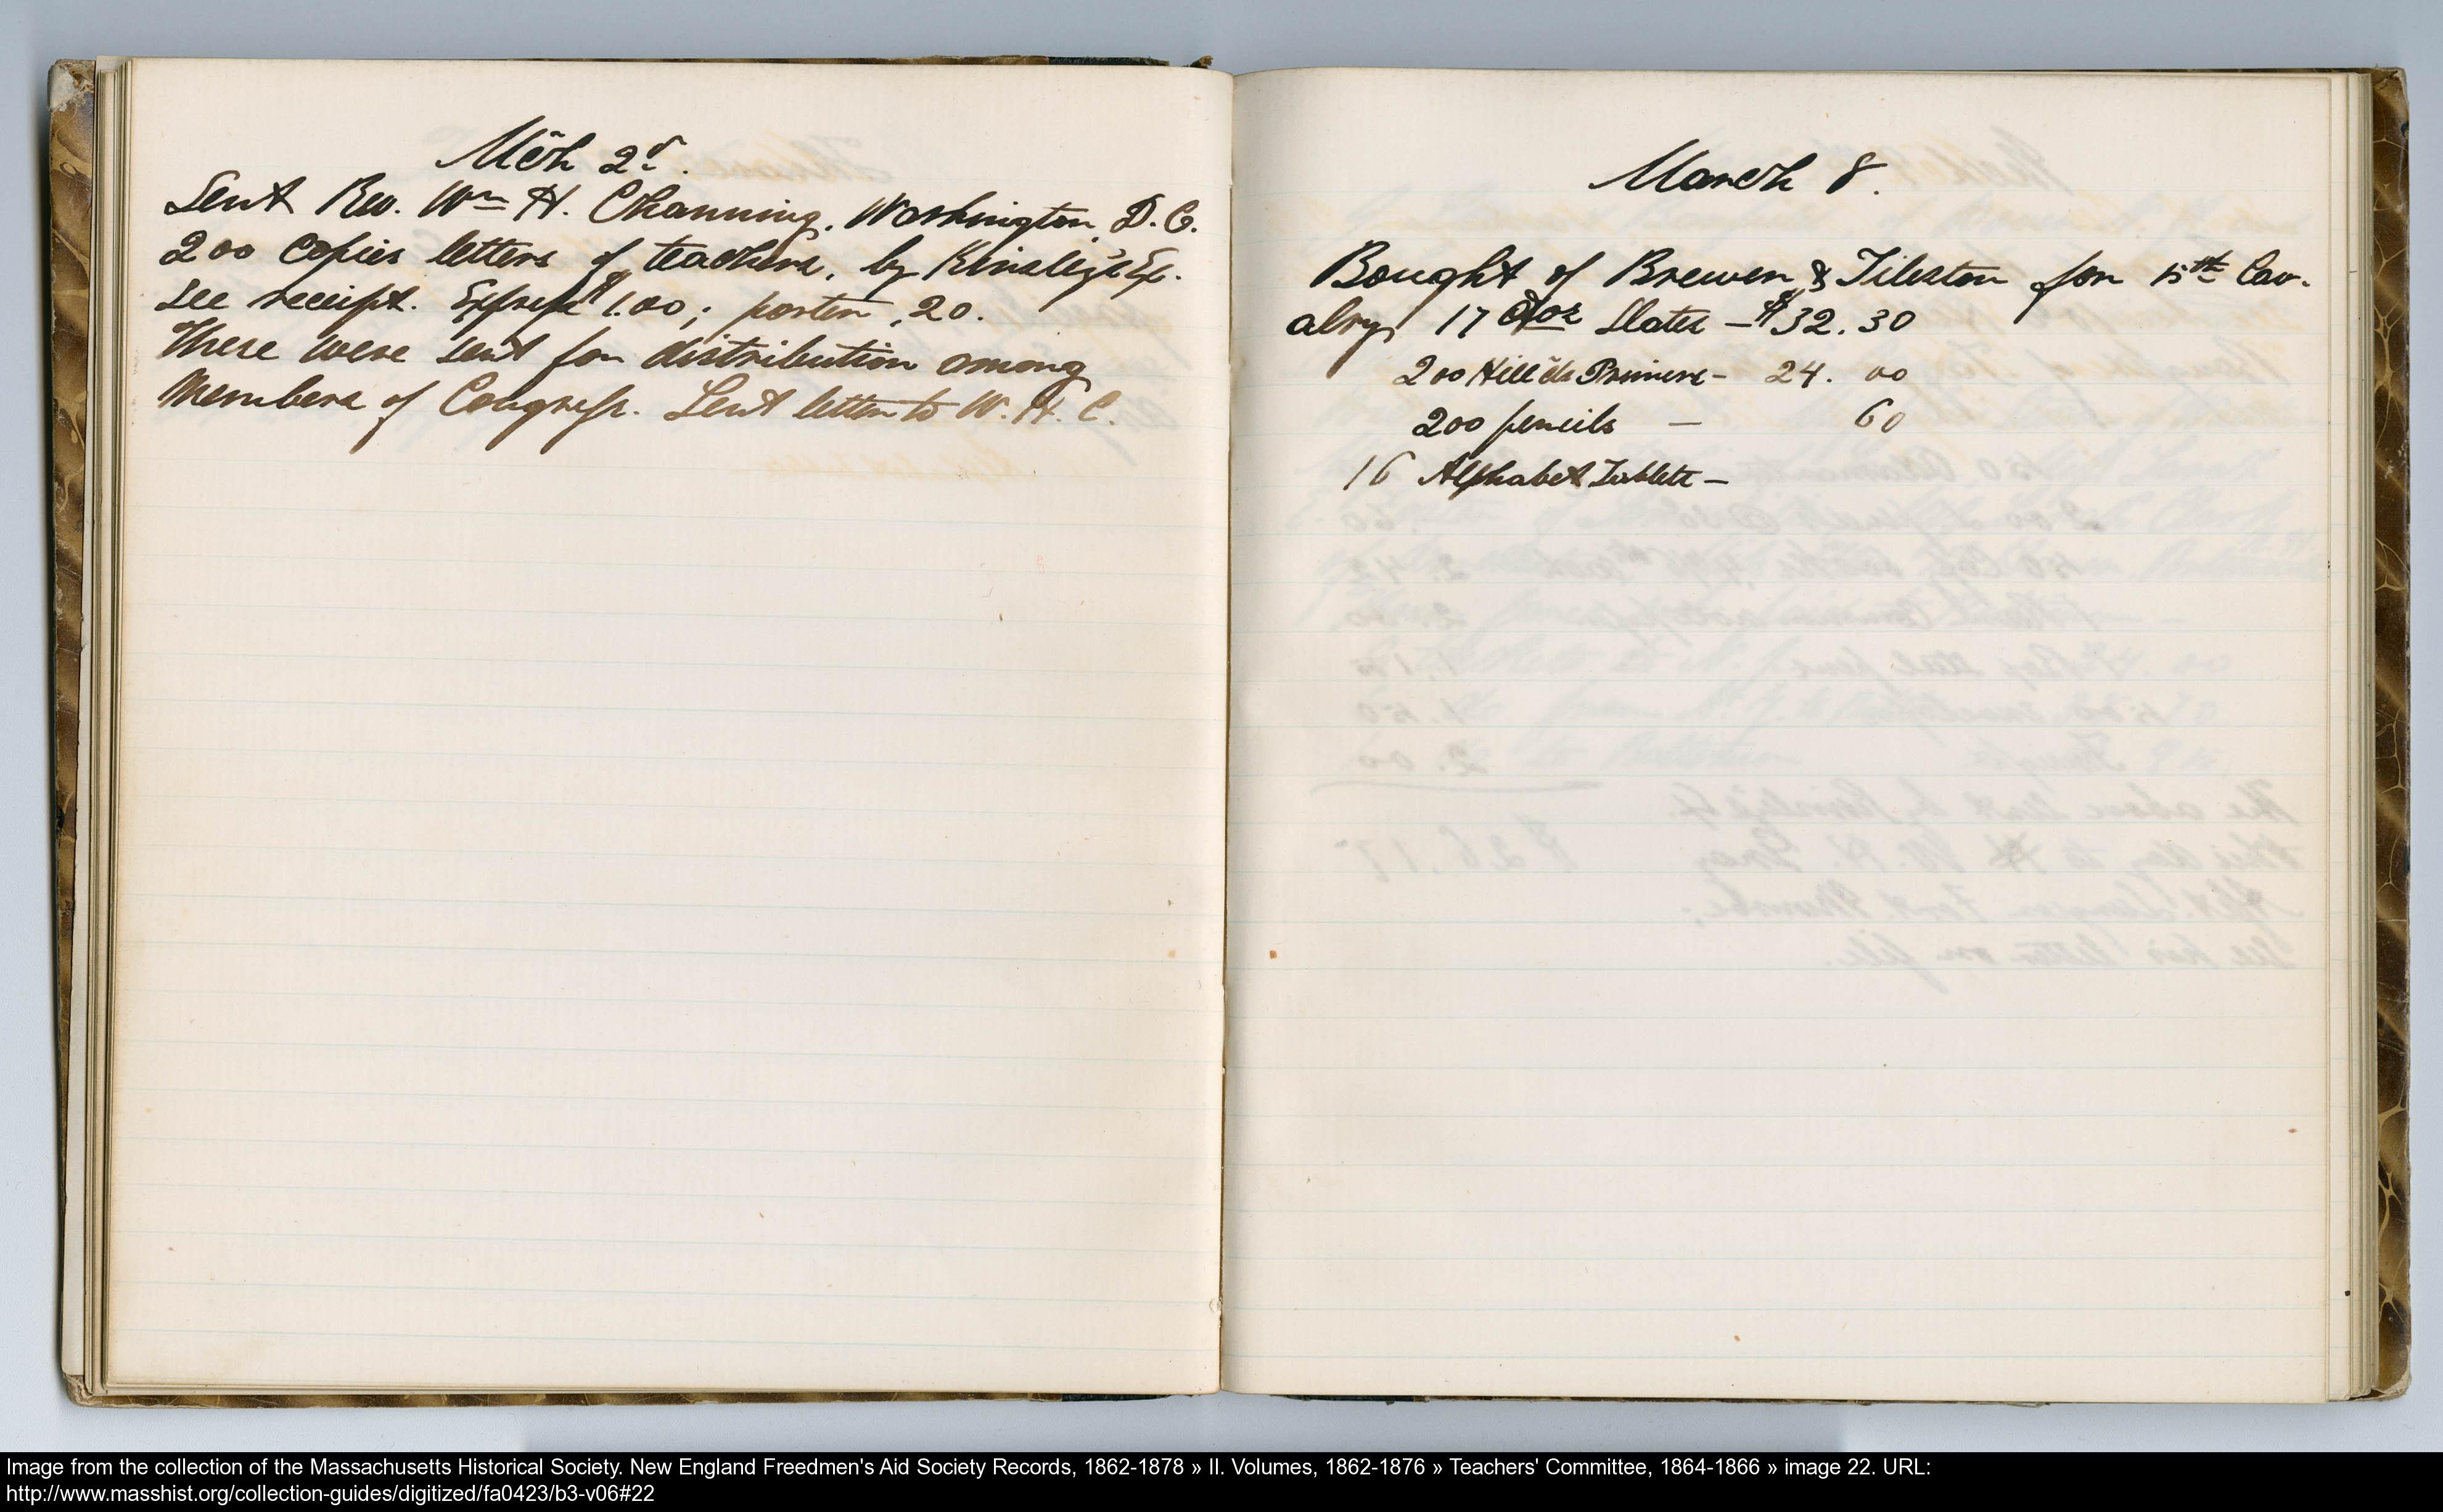 Mch 2d.
Sent Rev. Wm H. Channing, Washington, D.C.
200 copies letters of teachers, by Kinsley's Ex.
see receipt. Express $1.00; porter, 20.
These were sent for distribution among
Members of Congress. Sent letter to W. H. C.
March 8.
Bought of Brewer & Tileston for 15th Cav-
alry, 17 doz Slates - $32.30
200 Hillard's Primers - 24. 00
200 pencils - 60
16 Alphabet Tablets -
Image from the collection of the Massachusetts Historical Society. New England Freedmen's Aid Society Records, 1862-1878 » II. Volumes, 1862-1876 » Teachers' Committee, 1864-1866 » image 22. URL:
http://www.masshist.org/collection-guides/digitized/fa0423/b3-v06#22